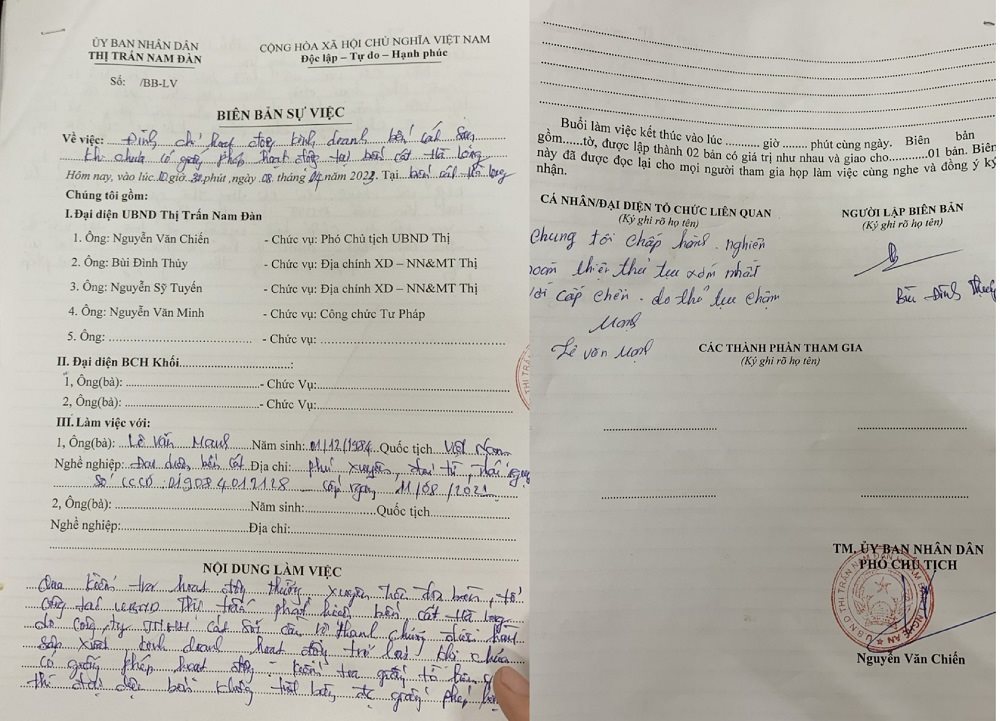 ỦY BAN NHÂN DÂN
THỊ TRẤN NAM ĐÀN
Số: /BB-LV
CỘNG HÒA XÃ HỘI CHỦ NGHĨA VIỆT NAM
Độc lập – Tự do – Hạnh phúc
BIÊN BẢN SỰ VIỆC
Về việc: Đình chỉ hoạt động kinh doanh bến cát sạn
khi chưa có giấy phép hoạt động tại bến cát Hà Long
Hôm nay, vào lúc 10 giờ 30 phút, ngày 08 tháng 04 năm 2022. Tại bến cát Hà Long
Chúng tôi gồm:
I. Đại diện UBND Thị Trấn Nam Đàn
1. Ông: Nguyễn Văn Chiến - Chức vụ: Phó Chủ tịch UBND Thị
2. Ông: Bùi Đình Thủy - Chức vụ: Địa chính XD – NN&MT Thị
3. Ông: Nguyễn Sỹ Tuyến - Chức vụ: Địa chính XD – NN&MT Thị
4. Ông: Nguyễn Văn Minh - Chức vụ: Công chức Tư Pháp
5. Ông: - Chức vụ:
II. Đại diện BCH Khối:
1, Ông(bà): - Chức Vụ:
2, Ông(bà): - Chức Vụ:
III. Làm việc với:
1, Ông(bà): Lê Văn Mạnh Năm sinh: 01/12/1984 Quốc tịch Việt Nam
Nghề nghiệp: Đại diện bến cát Địa chỉ: phú xuyên, đại từ, thái
số CCCD 019084012128 cấp ngày 11/08/2021
2, Ông(bà): Năm sinh: Quốc tịch
Nghề nghiệp: Địa chỉ:
NỘI DUNG LÀM VIỆC
Qua kiểm tra hoạt động thường xuyên trên địa bàn, tổ
công tác UBND Thị trấn phát hiện bến cát Hà Long
do công ty TNHH cát sỏi Thanh Chương
sản xuất, kinh doanh hoạt động trở lại khi chưa
có giấy phép hoạt động - kiểm tra giấy tờ liên
thì đại diện bến không giấy phép
Buổi làm việc kết thúc vào lúc giờ phút cùng ngày. Biên bản
gồm tờ, được lập thành 02 bản có giá trị như nhau và giao cho 01 bản. Biên
này đã được đọc lại cho mọi người tham gia họp làm việc cùng nghe và đồng ý ký
nhận.
CÁ NHÂN/ĐẠI DIỆN TỔ CHỨC LIÊN QUAN
(Ký ghi rõ họ tên)
Chúng tôi chấp hành. nghiên
hoàn thiện thủ tục sớm nhất
với cấp trên. do thủ tục chậm
Mạnh
Lê văn Mạnh
NGƯỜI LẬP BIÊN BẢN
(Ký ghi rõ họ tên)
Bùi Đình Thủy
CÁC THÀNH PHẦN THAM GIA
(Ký ghi rõ họ tên)
TM. ỦY BAN NHÂN DÂN
PHÓ CHỦ TỊCH
Nguyễn Văn Chiến